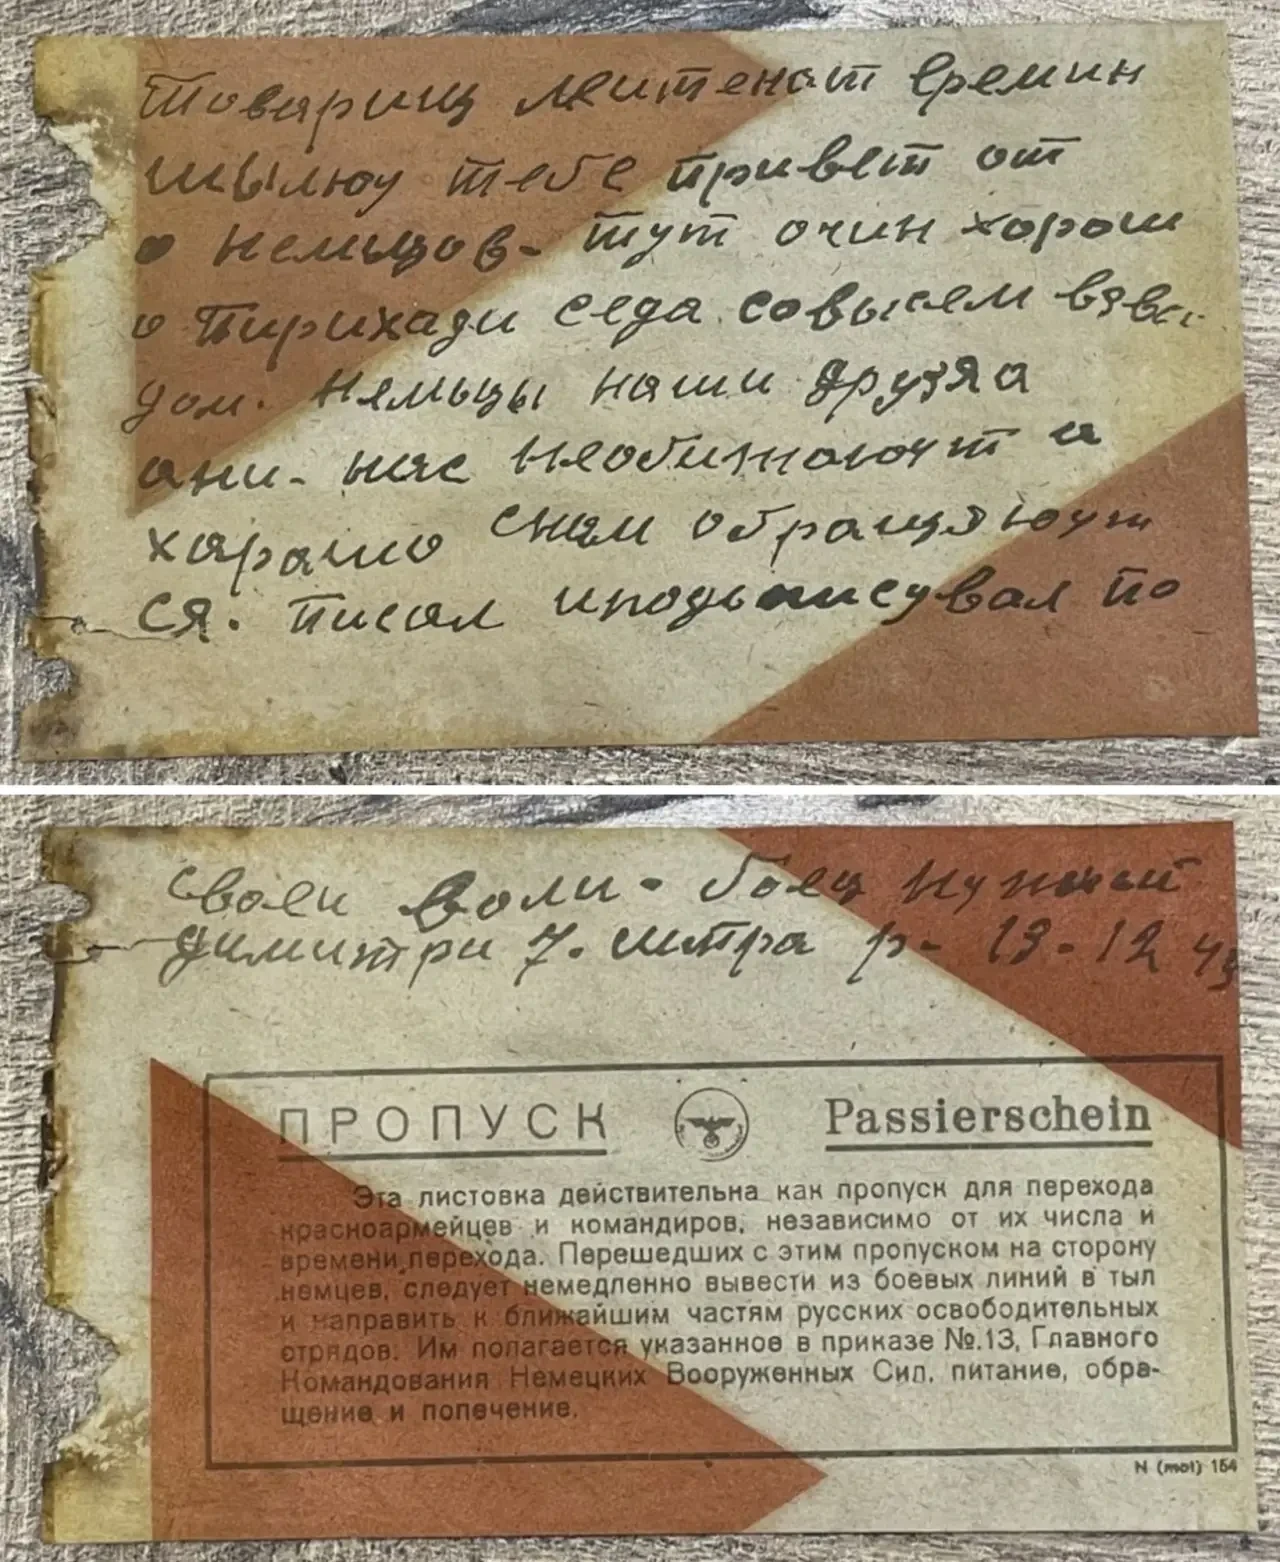 Товарищ леитенат Еремин
шылюу тебе привет от
о немьцов- тут очин хорош
о пирихади седа совысем взво
дом. нямьцы наши друзя а
ани- няс необижаюут а
харашо снам обращяюут
ся. писал иподьписувал по
своеи воли- боец
Димитри 7. штра р- 13-12 43
ПРОПУСК Passierschein
Эта листовка действительна как пропуск для перехода
красноармейцев и командиров, независимо от их числа и
времени перехода. Перешедших с этим пропуском на сторону
немцев, следует немедленно вывести из боевых линий в тыл
и направить к ближайшим частям русских освободительных
отрядов. Им полагается указанное в приказе №.13, Главного
Командования Немецких Вооруженных Сил, питание, обра-
щение и попечение.
N (mot) 154